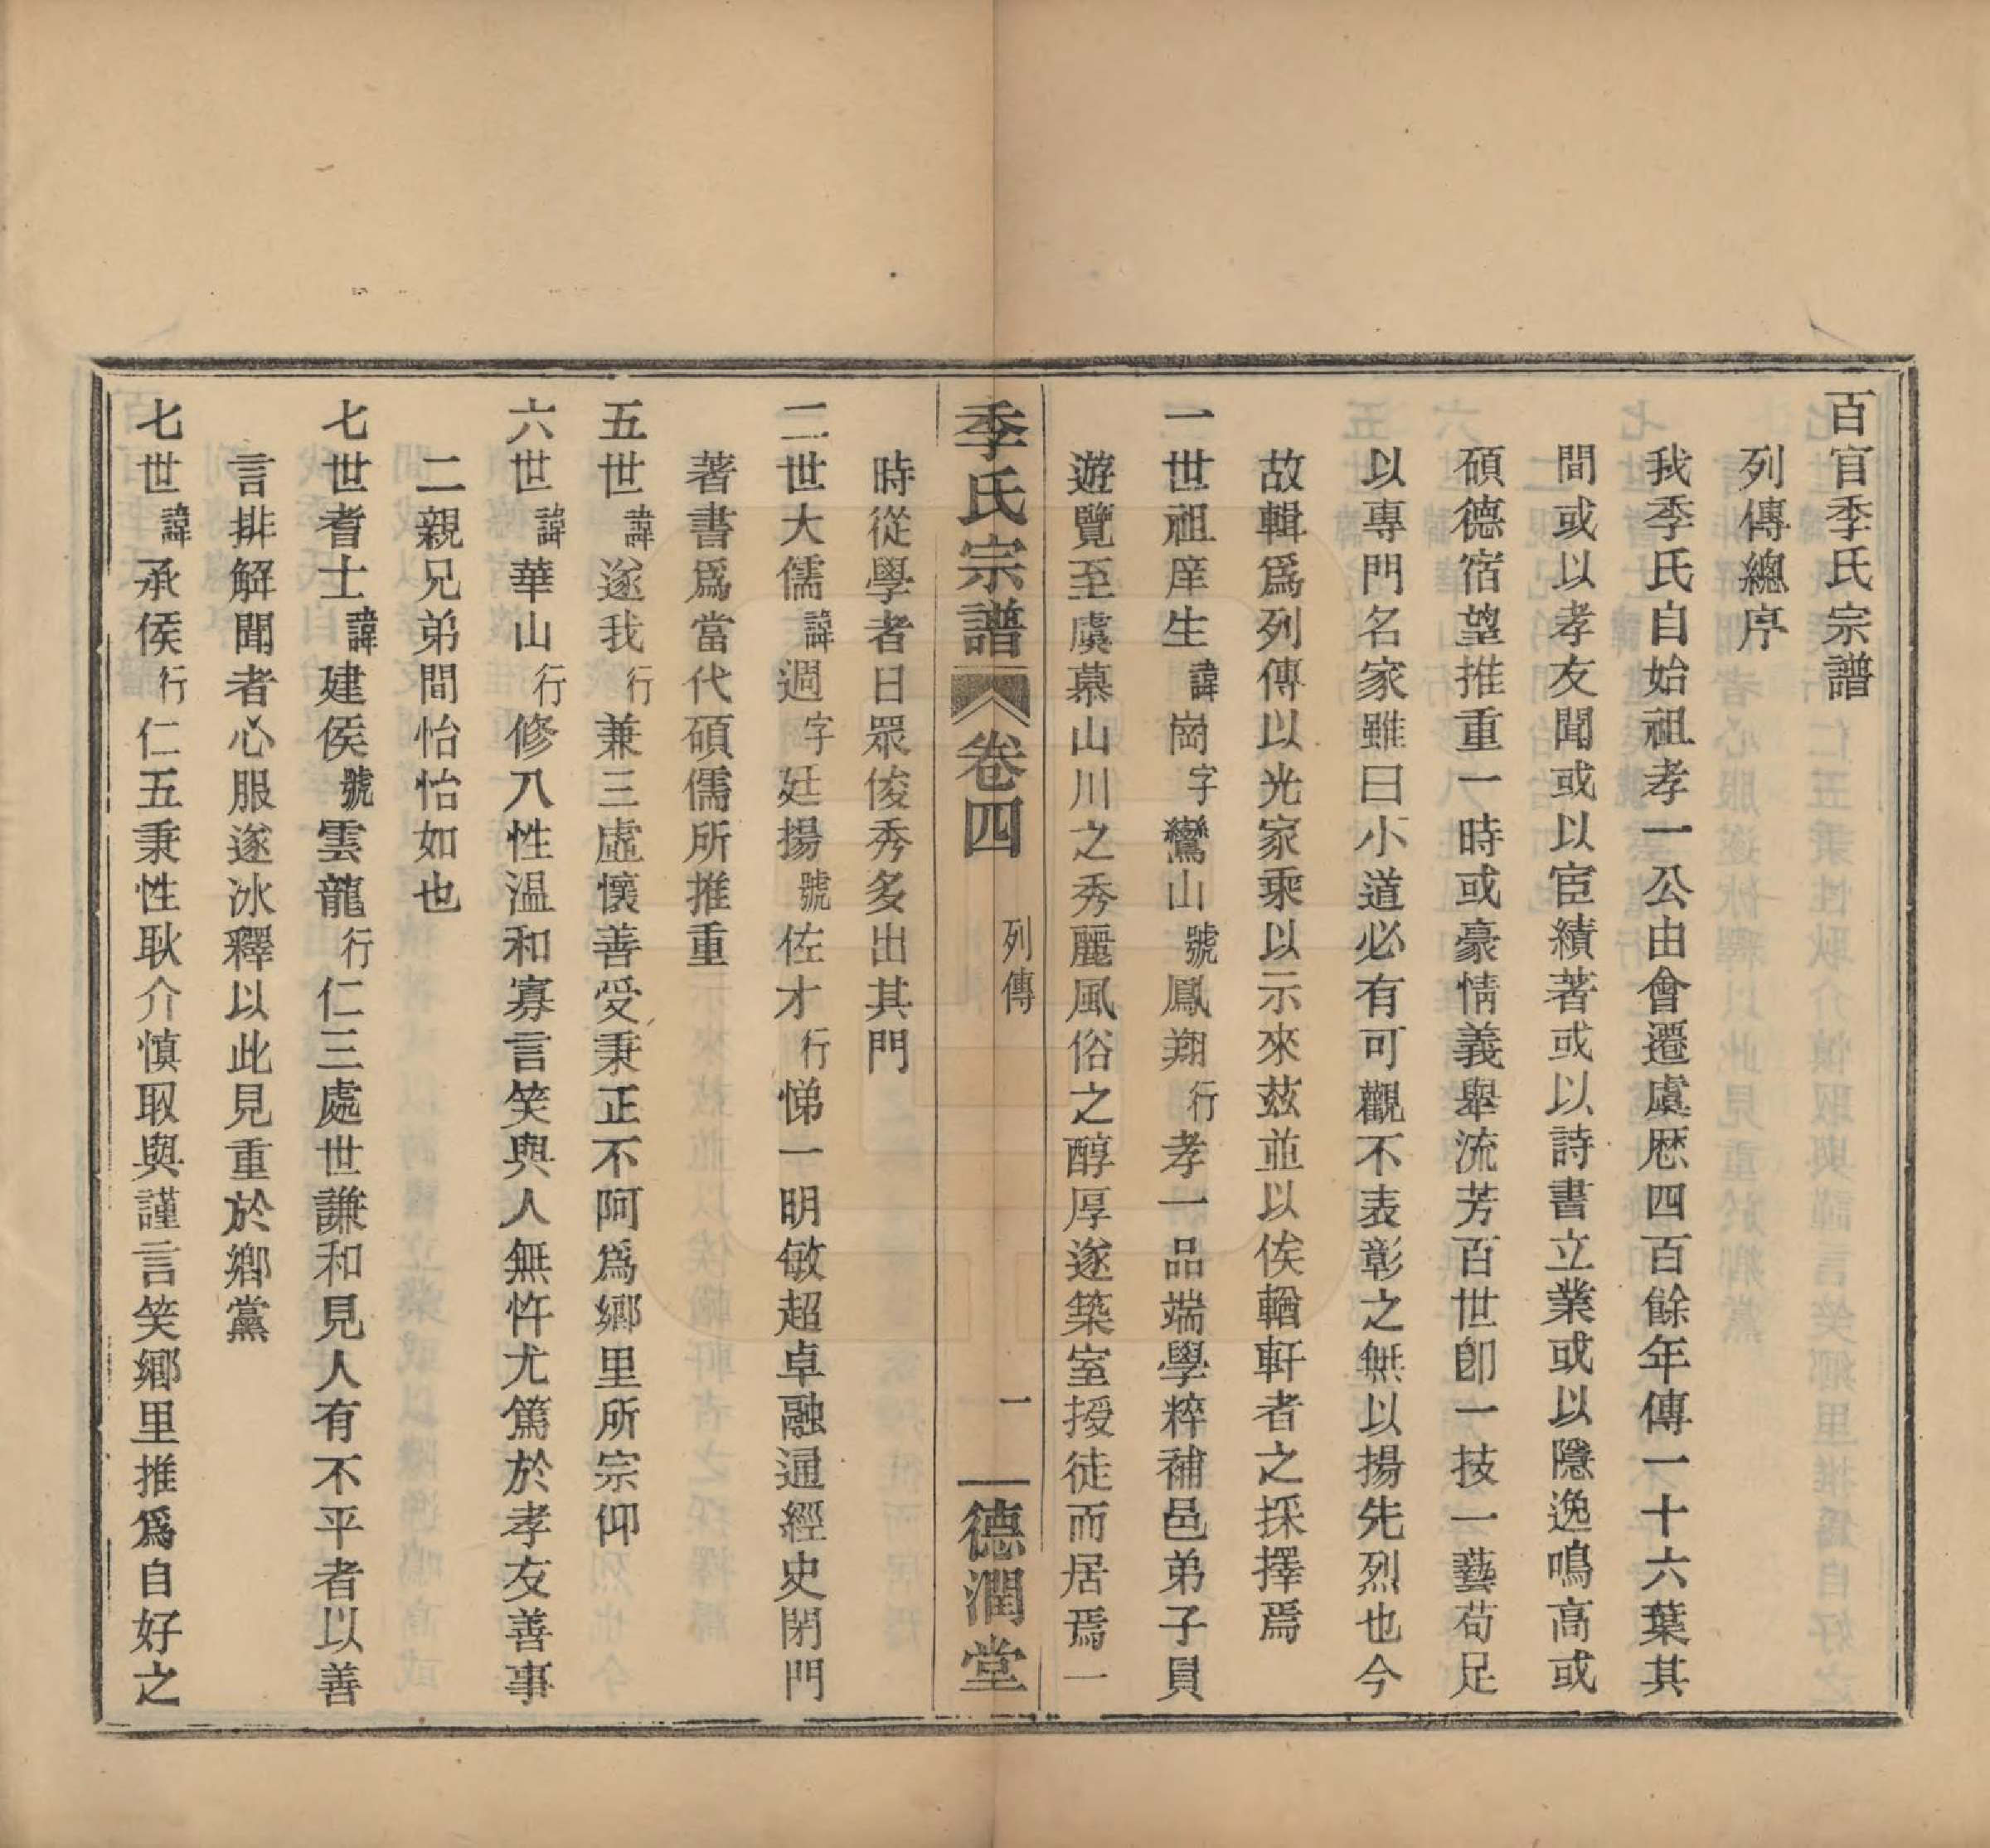 百官季氏宗譜
列傳總序
我季氏自始祖孝一公由會遷虞歷四百餘年傳一十六葉其
間或以孝友聞或以宦績著或以詩書立業或以隱逸鳴高或
碩德宿望推重一時或豪情義舉流芳百世卽一技一藝苟足
以專門名家雖曰小道必有可觀不表彰之無以揚先烈也今
故輯爲列傳以光家乘以示來茲並以俟輶軒者之採擇焉
一世祖庠生諱崗字鸞山號鳳翔行孝一品端學粹補邑弟子員
遊覽至虞慕山川之秀麗風俗之醇厚遂築室授徒而居焉一
季氏宗譜 卷四 列傳 一 德潤堂
時從學者日眾俊秀多出其門
二世大儒諱週字廷揚號佐才行悌一明敏超卓融通經史閉門
著書爲當代碩儒所推重
五世諱遂我行兼三虛懷善受秉正不阿爲鄉里所宗仰
六世諱華山行修八性温和寡言笑與人無忤尤篤於孝友善事
二親兄弟間怡怡如也
七世耆士諱建侯號雲龍行仁三處世謙和見人有不平者以善
言排解聞者心服遂冰釋以此見重於鄉黨
七世諱承侯行仁五秉性耿介慎取與謹言笑鄉里推爲自好之